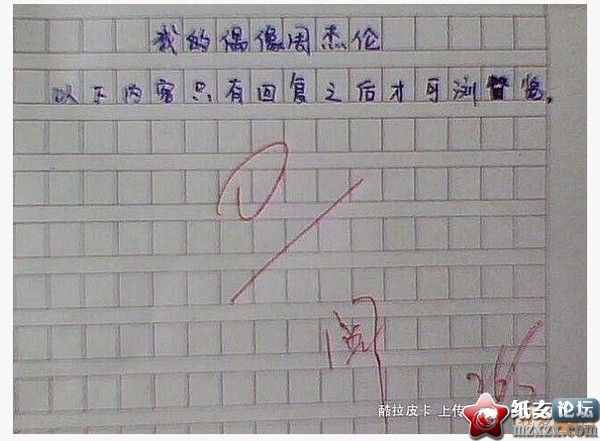 我的偶像周杰伦
以下内容只有回复之后才可浏览。
0
阅
酷拉皮卡 上传
纸玄论坛
mzxtzx.com